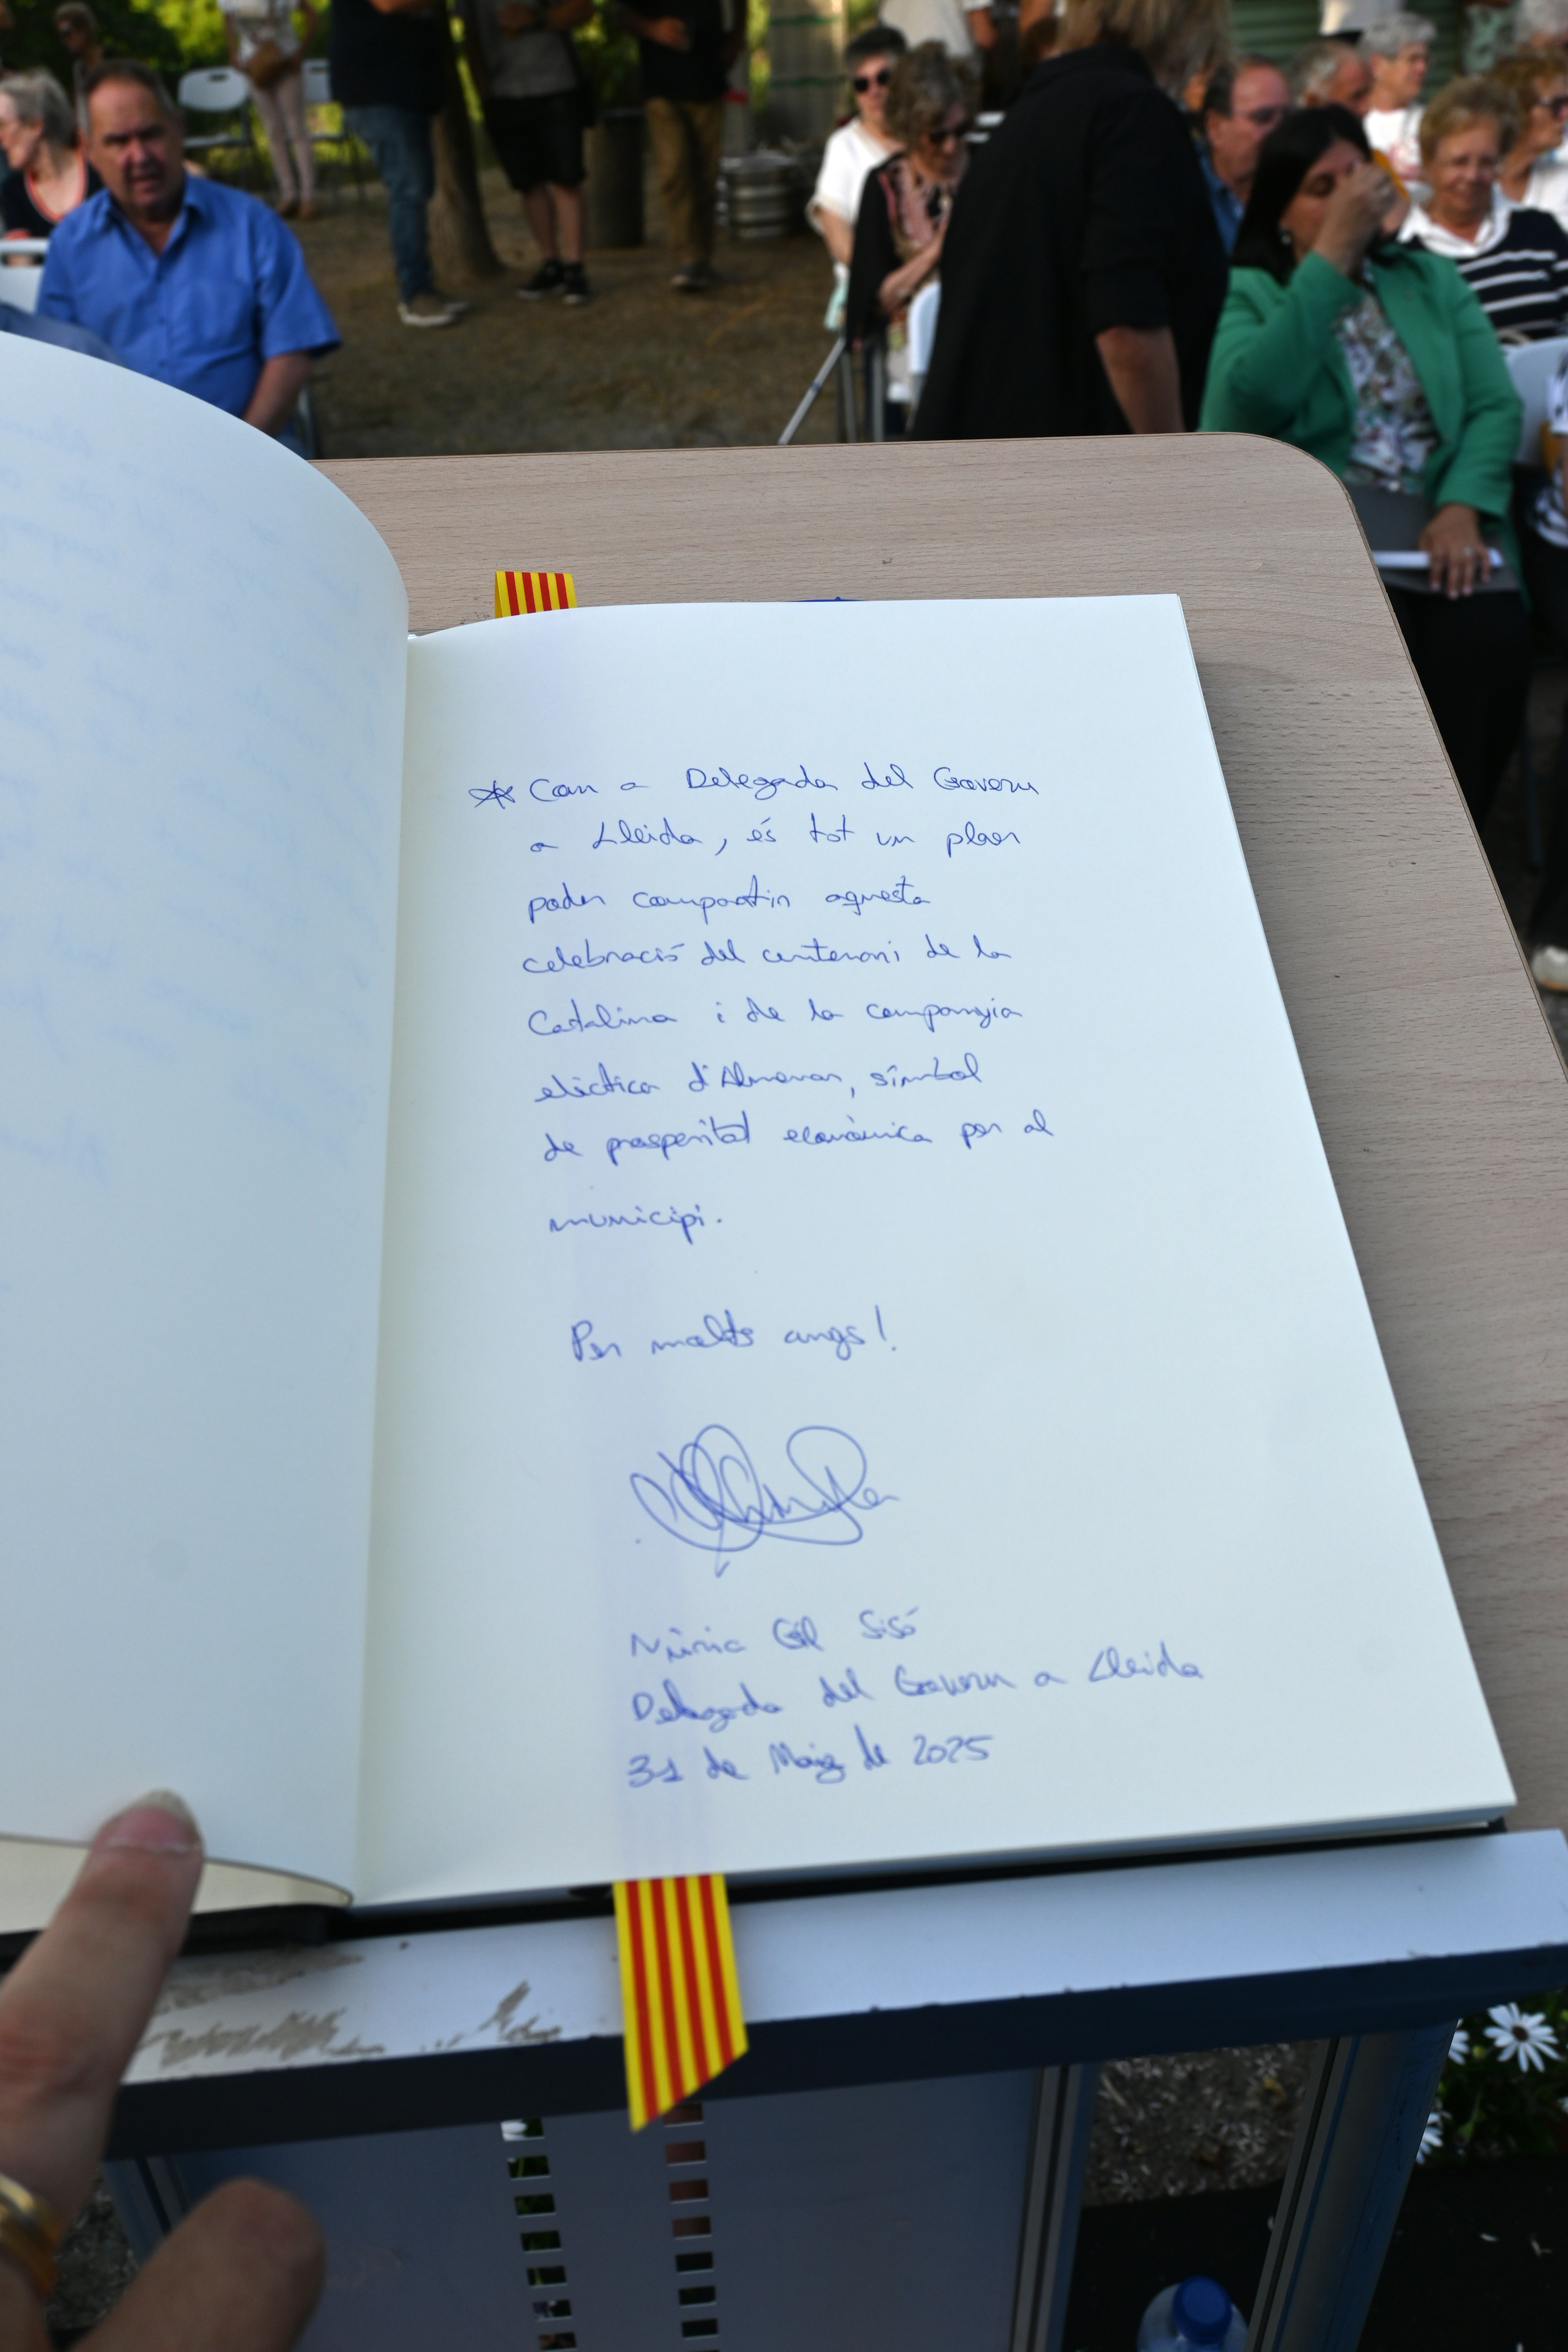 Com a Delegada del Govern
a Lleida, és tot un plaer
poder compartir aquesta
celebració del centenari de la
Catalina i de la companyia
elèctrica d'Almenar, símbol
de prosperitat econòmica per al
municipi.
Per molts anys!
Núria Gil Sisó
Delegada del Govern a Lleida
31 de Maig de 2025